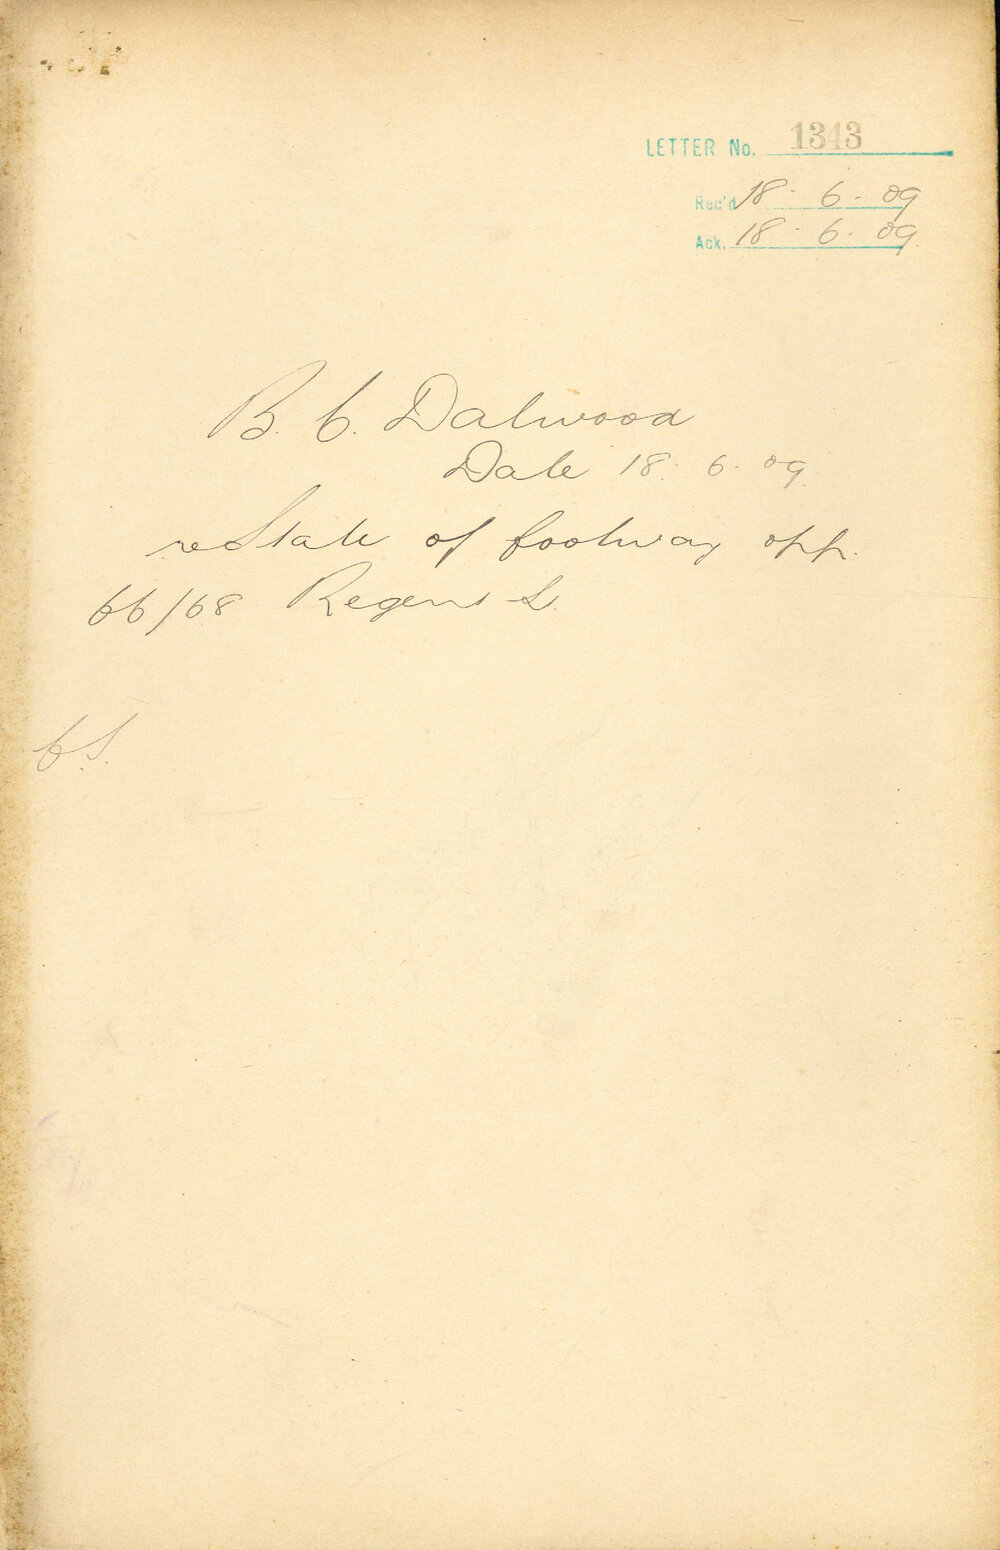 LETTER No. 1343
Rec'd 18. 6. 09
Ack. 18. 6. 09.
B. C. Dalwood
Date 18. 6. 09.
re State of footway opp.
66/68 Regent St.
C.S.